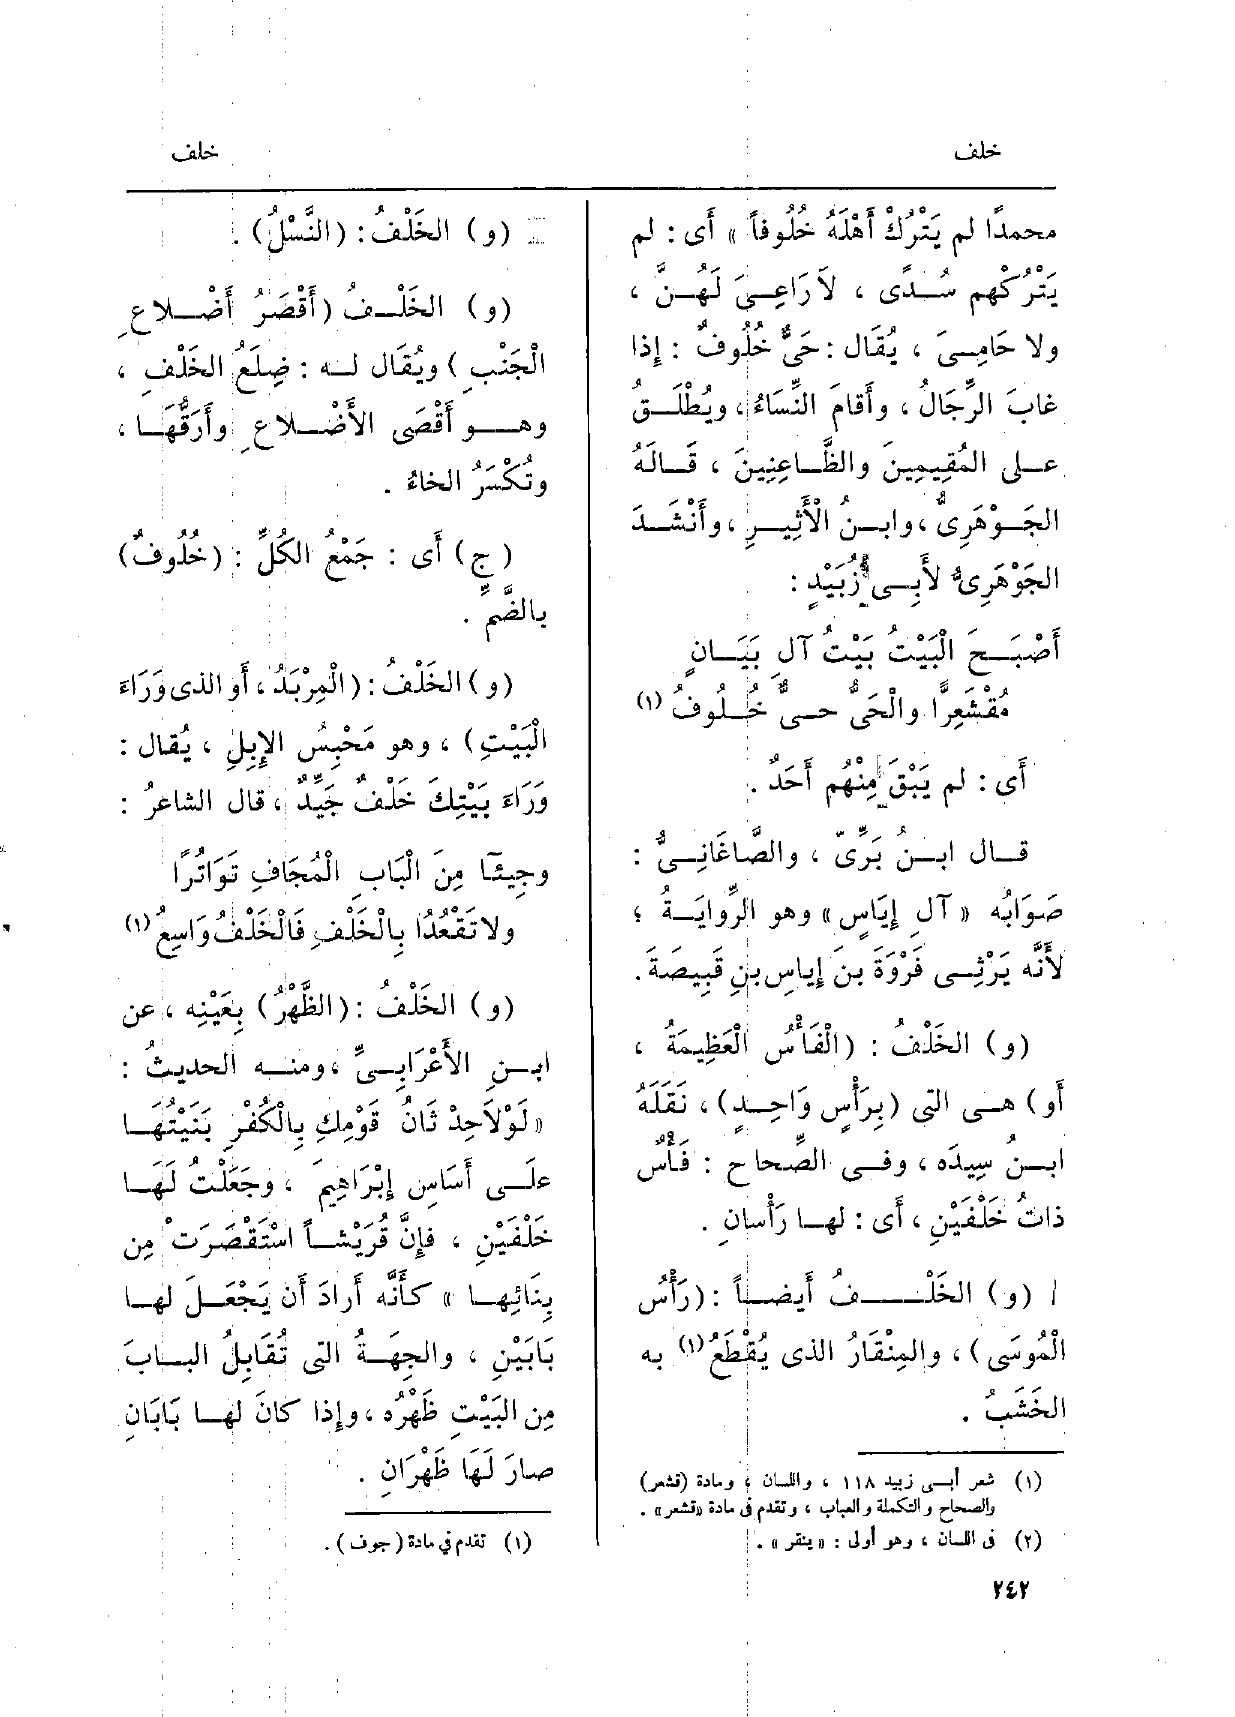 خلف
خلف
محمدًا لم يَتْرُكْ أَهْلَهُ خُلُوفاً » أَى : لم
يَتْرُكْهم سُدًى ، لاَرَاعِىَ لَهُنَّ ،
ولا حَامِىَ ، يُقَال : حَىٌّ خُلُوفٌ : إذا
غابَ الرِّجَالُ ، وأَقامَ النِّسَاءُ ، ويُطْلَقُ
على المُقِيمِينَ والظَّاعِنِينَ ، قَالَهُ
الجَوْهَرِىُّ ، وابنُ الْأَثِيرِ ، وأَنْشَدَ
الجَوْهَرِىُّ لأَبِى زُبَيْدٍ :
أَصْبَحَ الْبَيْتُ بَيْتُ آلِ بَيَانٍ
مُقْشَعِرًّا والْحَىُّ حىٌّ خُلُوفُ (١)
أَى : لم يَبْقَ مِنْهُم أَحَدٌ .
قال ابنُ بَرِّىّ ، والصَّاغَانِىُّ :
صَوَابُه « آلِ إِيَاسٍ » وهو الرِّوايَةُ ؛
لأَنَّه يَرْثِى فَرْوَةَ بنَ إِياسِ بنِ قَبِيصَةَ .
(و) الخَلْفُ : (الْفَأْسُ الْعَظِيمَةُ ،
أَو) هى التى (بِرَأْسٍ وَاحِدٍ) ، نَقَلَهُ
ابنُ سِيدَه ، وفى الصِّحاح : فَأْسٌ
ذاتُ خَلْفَيْنِ ، أَى : لها رَأْسانِ .
(و) الخَلْفُ أَيضاً : (رَأْسُ
الْمُوسَى) ، والمِنْقَارُ الذى يُقْطَعُ (١) به
الخَشَبُ .
(١) شعر أبى زبيد ١١٨ ، واللسان ، ومادة (قشعر)
والصحاح والتكملة والعباب ، وتقدم فى مادة «قشعر» .
(٢) فى اللسان ، وهو أولى : « ينقر » .
(و) الخَلْفُ : (النَّسْلُ) .
(و) الخَلْفُ (أَقْصَرُ أَضْلاعِ
الْجَنْبِ) ويُقَال له : ضِلَعُ الخَلْفِ ،
وهو أَقْصَى الأَضْلاعِ وأَرَقُّهَا ،
وتُكْسَرُ الخاءُ .
(ج) أَى : جَمْعُ الكُلِّ : (خُلُوفٌ)
بالضَّمِّ .
(و) الخَلْفُ : (الْمِرْبَدُ ، أَو الذى وَرَاءَ
الْبَيْتِ) ، وهو مَحْبِسُ الإِبِلِ ، يُقال :
وَرَاءَ بَيْتِكَ خَلْفٌ جَيِّدٌ ، قال الشاعرُ :
وجِيئَا مِنَ الْبَابِ الْمُجَافِ تَوَاتُرًا
ولاتَقْعُدَا بِالْخَلْفِ فَالْخَلْفُ وَاسِعُ (١)
(و) الخَلْفُ : (الظَّهْرُ) بِعَيْنِه ، عن
ابنِ الأَعْرَابِىِّ ، ومنه الحديثُ :
« لَوْلاَحِدْثَانُ قَوْمِكِ بِالْكُفْرِ بَنَيْتُهَا
علَى أَسَاسِ إِبْرَاهِيمَ ، وجَعَلْتُ لَهَا
خَلْفَيْنِ ، فإِنَّ قُرَيْشاً اسْتَقْصَرَتْ مِن
بِنَائِها » كأَنَّه أَرادَ أَن يَجْعَلَ لها
بَابَيْنِ ، والجِهَةُ التى تُقَابِلُ البابَ
مِن البَيْتِ ظَهْرُه ، وإِذا كانَ لها بَابَانِ
صارَ لَهَا ظَهْرَانِ .
(١) تقدم فى مادة (جوف) .
٢٤٢